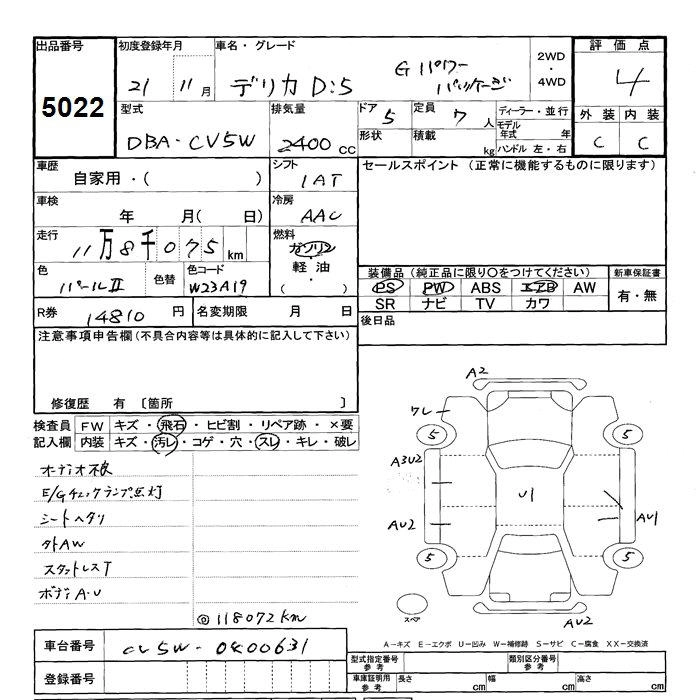 出品番号
5022
初度登録年月
21 11月
車名・グレード
デリカ D:5
G パワー
パッケージ
2WD
・
4WD
評価点
4
外装 内装
C C
型式
DBA-CV5W
排気量
2400 cc
ドア 5
定員 7人
ディーラー・並行
モデル年式 年
ハンドル 左・右
形状
積載 kg
車歴
自家用・( )
シフト
IAT
セールスポイント (正常に機能するものに限ります)
車検
年 月( 日)
冷房
AAC
走行
11万8千075km
燃料
ガソリン
軽油
( ・ )
色
パールII
色替
色コード
W23A19
装備品 (純正品に限り○をつけてください)
PS PW ABS エアB AW
SR ナビ TV カワ
新車保証書
有・無
R券
14810 円
名変期限 月 日
後日品
注意事項申告欄 (不具合内容等は具体的に記入して下さい)
修復歴 有 〔箇所 〕
検査員
記入欄
FW キズ・飛石・ヒビ割・リペア跡・×要
内装 キズ・汚レ・コゲ・穴・スレ・キレ・破レ
オーディオ不良
E/Gチェックランプ点灯
シートヘタリ
外AW
スタットレスT
ボディA・U
@118072km
A2
ワレ
5
5
A3U2
U1
AU2
AU1
5
5
スペア
AU2
A-キズ E-エクボ U-凹み W-補修跡 S-サビ C-腐食 XX-交換済
車台番号
CV5W-0400631
登録番号
型式指定番号
参考
類別区分番号
参考
車庫証明用
参考
長さ cm
幅 cm
高さ cm